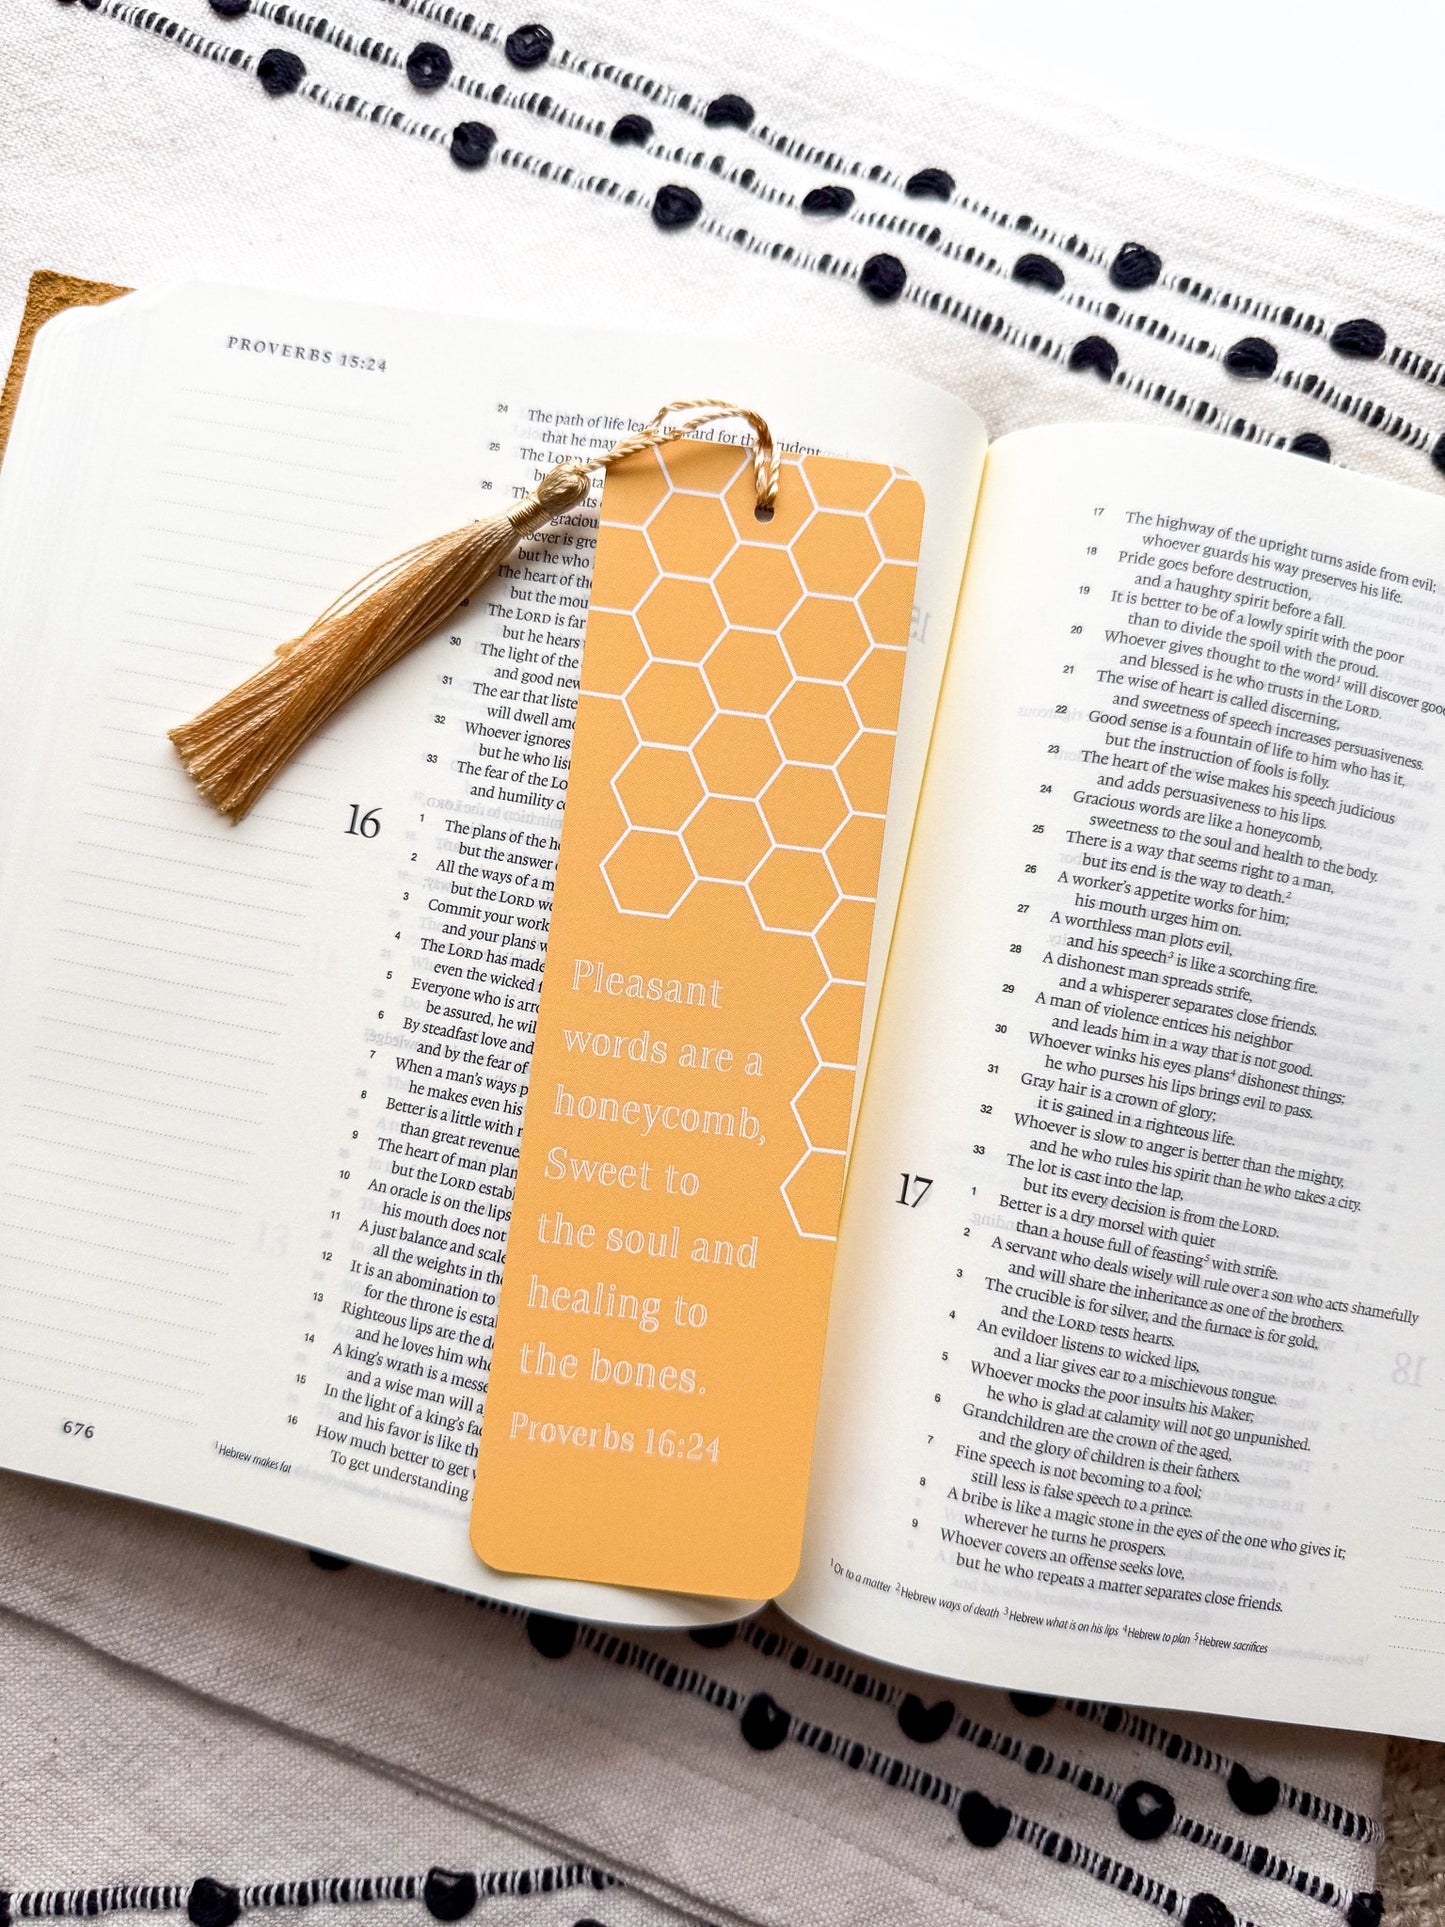 PROVERBS 15:24
24 The path of life
that he may
25 The LORD
26
but he who
The heart of the
but the
The LORD is far
but he hears
30 The light of the
and good
31 The ear that
will dwell
32 Whoever ignores
but he who
33 The fear of the
and humility
16
1 The plans of the
but the answer
2 All the ways of a
but the LORD
3 Commit your work
and your plans
4 The LORD has made
even the wicked
5 Everyone who is
be assured, he
6 By steadfast love and
and by the fear of
7 When a man's ways
he makes even his
8 Better is a little with
than great
9 The heart of man
but the LORD
10 An oracle is on the lips
his mouth does not
11 A just balance and
all the weights in
12 It is an abomination to
for the throne is
13 Righteous lips are the
and he loves him
14 A king's wrath is a
and a wise man will
15 In the light of a king's
and his favor is like
16 How much better to get
To get understanding
676
1 Hebrew makes fat
Pleasant
words are a
honeycomb,
Sweet to
the soul and
healing to
the bones.
Proverbs 16:24
17 The highway of the upright turns aside from evil;
whoever guards his way preserves his life.
18 Pride goes before destruction,
and a haughty spirit before a fall.
19 It is better to be of a lowly spirit with the poor
than to divide the spoil with the proud.
20 Whoever gives thought to the word1 will discover
and blessed is he who trusts in the LORD.
21 The wise of heart is called discerning,
and sweetness of speech increases persuasiveness.
22 Good sense is a fountain of life to him who has it,
but the instruction of fools is folly.
23 The heart of the wise makes his speech judicious
and adds persuasiveness to his lips.
24 Gracious words are like a honeycomb,
sweetness to the soul and health to the body.
25 There is a way that seems right to a man,
but its end is the way to death.2
26 A worker's appetite works for him;
his mouth urges him on.
27 A worthless man plots evil,
and his speech3 is like a scorching fire.
28 A dishonest man spreads strife,
and a whisperer separates close friends.
29 A man of violence entices his neighbor
and leads him in a way that is not good.
30 Whoever winks his eyes plans4 dishonest things;
he who purses his lips brings evil to pass.
31 Gray hair is a crown of glory;
it is gained in a righteous life.
32 Whoever is slow to anger is better than the mighty,
and he who rules his spirit than he who takes a city.
33 The lot is cast into the lap,
but its every decision is from the LORD.
17
1 Better is a dry morsel with quiet
than a house full of feasting5 with strife.
2 A servant who deals wisely will rule over a son who acts shamefully
and will share the inheritance as one of the brothers.
3 The crucible is for silver, and the furnace is for gold,
and the LORD tests hearts.
4 An evildoer listens to wicked lips,
and a liar gives ear to a mischievous tongue.
5 Whoever mocks the poor insults his Maker;
he who is glad at calamity will not go unpunished.
6 Grandchildren are the crown of the aged,
and the glory of children is their fathers.
7 Fine speech is not becoming to a fool;
still less is false speech to a prince.
8 A bribe is like a magic stone in the eyes of the one who gives it;
wherever he turns he prospers.
9 Whoever covers an offense seeks love,
but he who repeats a matter separates close friends.
1 Or to a matter 2 Hebrew ways of death 3 Hebrew what is on his lips 4 Hebrew to plan 5 Hebrew sacrifices